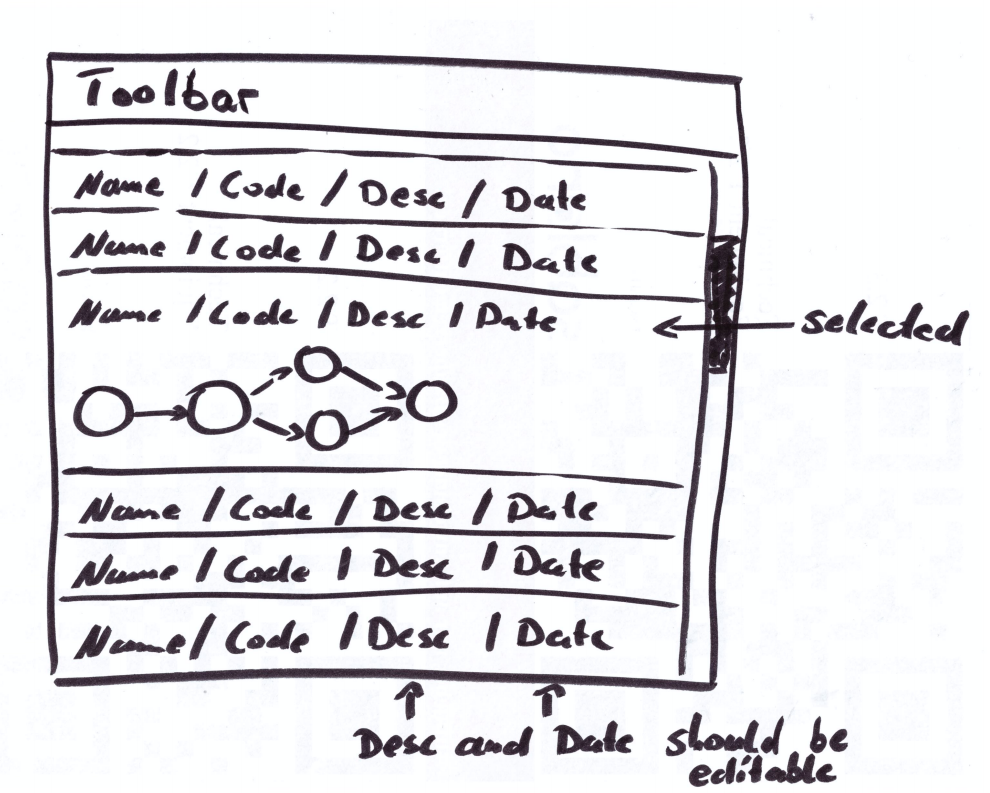 Toolbar
Name / Code / Desc / Date
Name / Code / Desc / Date
Name / Code / Desc / Date
selected
Name / Code / Desc / Date
Name / Code / Desc / Date
Name / Code / Desc / Date
Desc and Date should be
editable